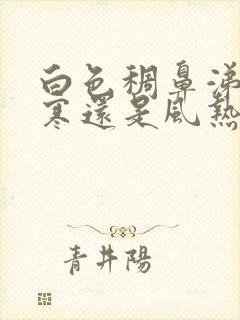 白色稠鼻涕
寒還是風熱
青井陽